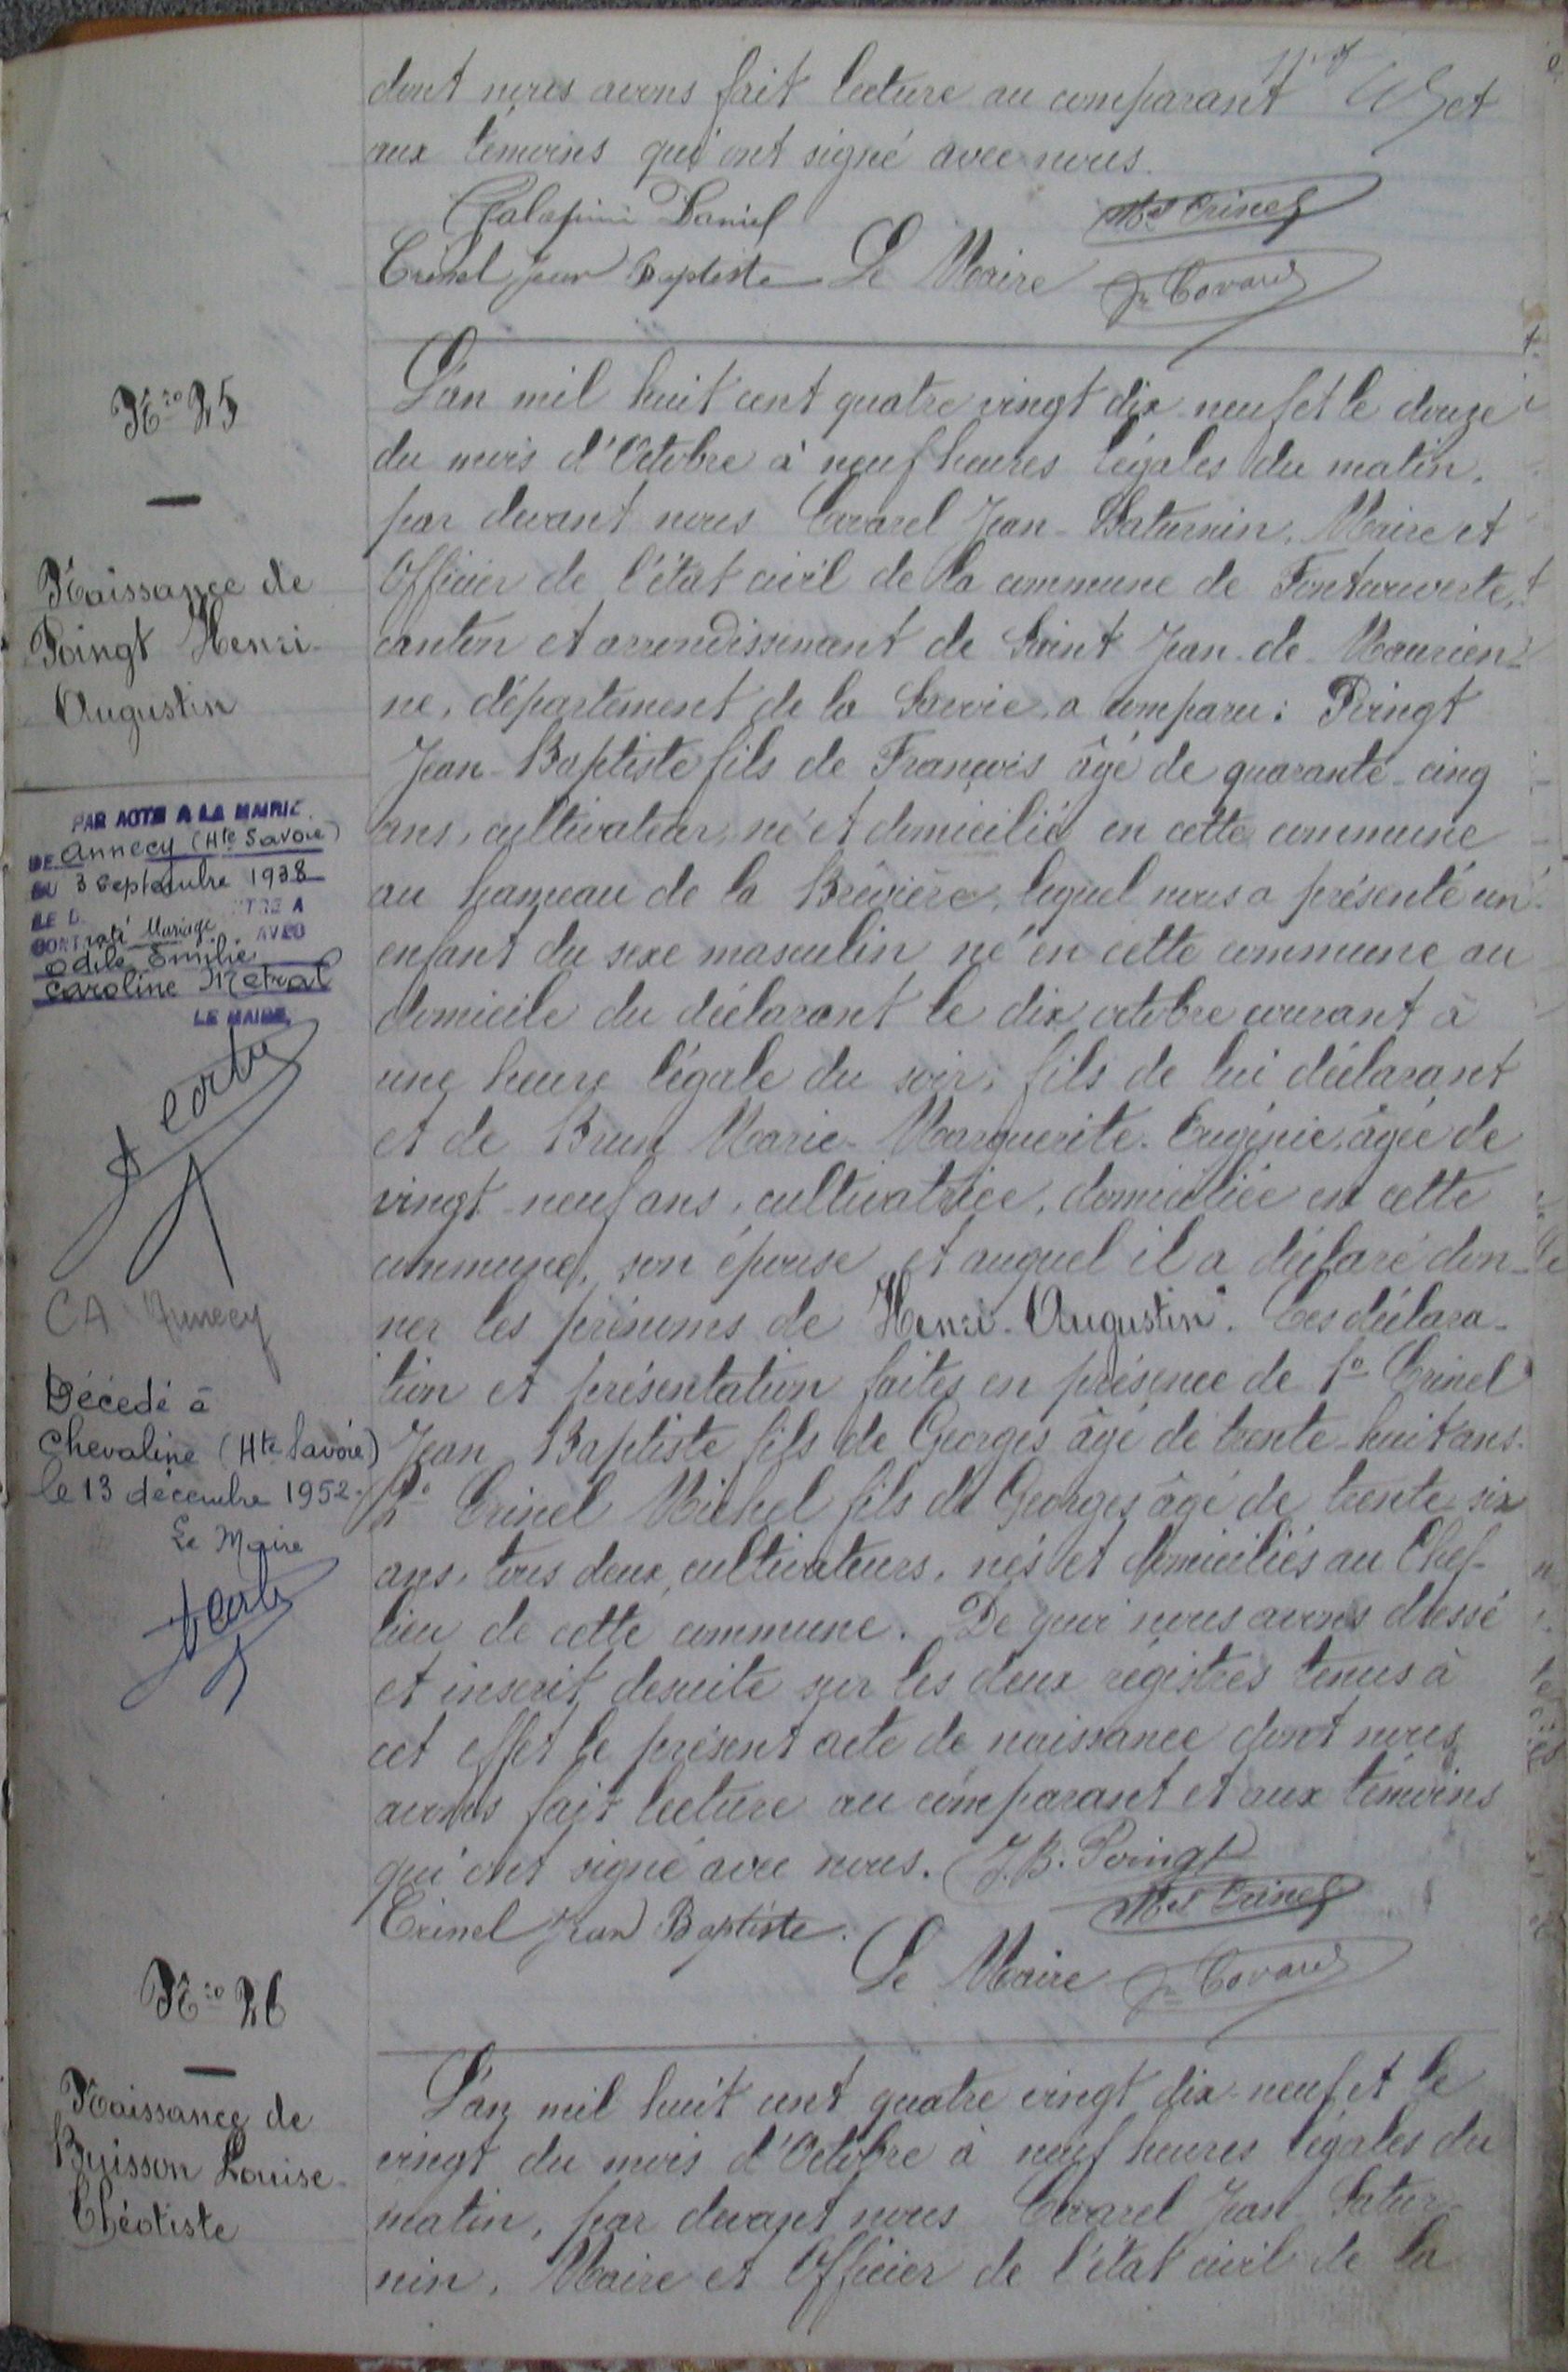 dont nous avons fait lecture au comparant et
aux témoins qui ont signé avec nous.
Daniel
Jean Baptiste Le Maire
Nro 25
Naissance de
Poingt Henri-
Augustin
PAR ACTE A LA MAIRIE
DE Annecy (Hte Savoie)
DU 3 Septembre 1938
CONTRacté Mariage AVEC
Odile Emilie
Caroline Métral
LE MAIRE
CA Annecy
Décédé à
Chevaline (Hte Savoie)
le 13 décembre 1952.
Le Maire
L'an mil huit cent quatre vingt dix-neuf et le douze
du mois d'Octobre à neuf heures légales du matin,
par devant nous Covarel Jean-Saturnin, Maire et
Officier de l'état civil de la commune de Fontcouverte,
canton et arrondissement de Saint Jean-de-Maurien-
ne, département de la Savoie, a comparu: Poingt
Jean-Baptiste fils de François âgé de quarante-cinq
ans, cultivateur, né et domicilié en cette commune
au hameau de la Brévière, lequel nous a présenté un
enfant du sexe masculin né en cette commune au
domicile du déclarant le dix octobre courant à
une heure légale du soir, fils de lui déclarant
et de Brun Marie-Marguerite-Eugénie, âgée de
vingt-neuf ans, cultivatrice, domiciliée en cette
commune, son épouse et auquel il a déclaré don-
ner les prénoms de Henri-Augustin. Ces déclara-
tion et présentation faites en présence de 1º Crinel
Jean Baptiste fils de Georges âgé de trente-huit ans.
2º Crinel Michel fils de Georges âgé de trente six
ans, tous deux, cultivateurs, nés et domiciliés au Chef-
lieu de cette commune. De quoi nous avons dressé
et inscrit desuite sur les deux régistres tenus à
cet effet le présent acte de naissance dont nous
avons fait lecture au comparant et aux témoins
qui ont signé avec nous. J.B. Poingt
Crinel Jean Baptiste.
Le Maire
Nro 26
Naissance de
Buisson Louise-
Théotiste
L'an mil huit cent quatre vingt dix-neuf et le
vingt du mois d'Octobre à neuf heures légales du
matin, par devant nous Covarel Jean Satur-
nin, Maire et Officier de l'état civil de la